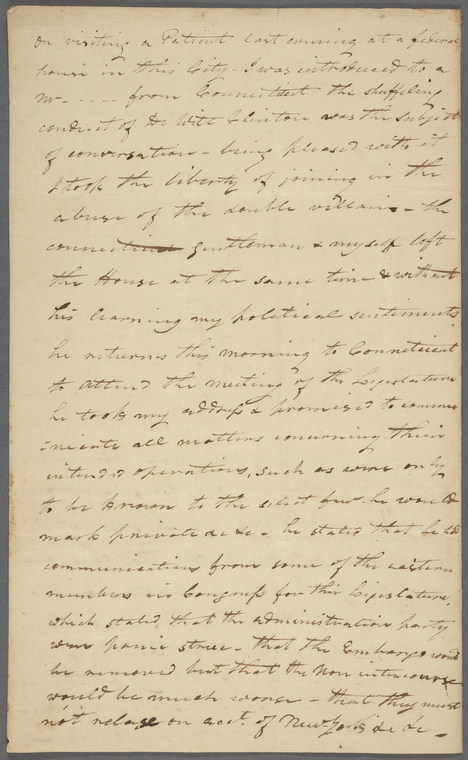 On visiting a Patient last evening at a federal
house in this City - I was introduced to a
Mr - - - - from Connecticut the shuffling
conduct of De Witt Clinton was the subject
of conversation - being pleased with it
I took the liberty of joining in the
abuse of the double villain - the
connecticut gentleman & myself left
the House at the same time & without
his learning my political sentiments
he returns this morning to Connecticut
to attend the meeting of the Legislature
he took my address & promised to commu
=nicate all matters concerning their
intended operations, such as were only
to be known to the select few he would
mark private &c &c - he stated that he had
communications from some of the eastern
members in Congress for their Legislature,
which stated that the administration party
were panic struc - that the Embargo would
be removed but that the Non intercourse
would be much worse - that they must
not relax on acct. of New-York &c &c -